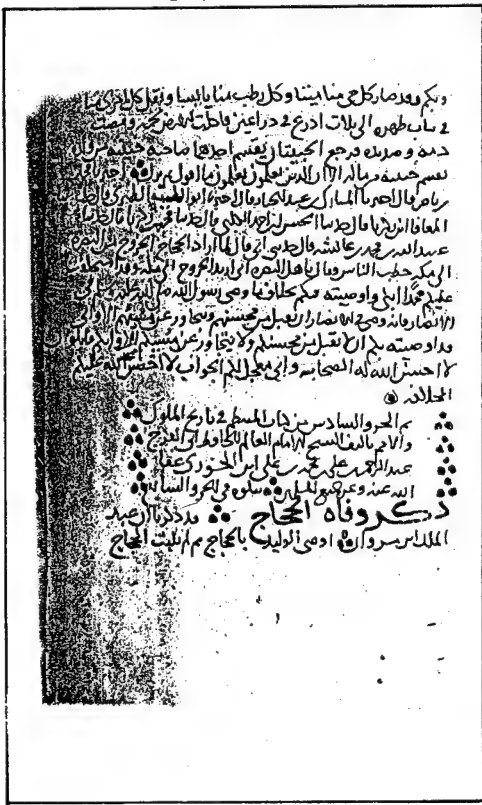 وبكم وقد صار كل حي منا ميتا وكل رطب منا يابسا ونقل كل امرئ منا
في ثياب طهره الى ثلاث اذرع في ذراعين فاكلت الارض لحمه ومصت
دمه وصديده ورجع الحبيبان يقتسم احدهما صاحبه حبيبه من ماله
يقسم حبيبه وماله الا ان الذين يعلمون يعلمون ما اقول اخبرنا محمد
بن ناصر قال اخبرنا المبارك بن عبد الجبار قال اخبرنا ابو الطيب الطبري قال حدثنا
المعافا ابن زكريا قال حدثنا الحسن بن احمد الكلبي قال حدثنا محمد بن زكريا قال حدثنا
عبيد الله بن محمد بن عائشة قال حدثني ابي قال لما اراد الحجاج الخروج من البصرة
الى مكة خطب الناس وقال يا اهل البصرة اني اريد الخروج الى مكة وقد استخلفت
عليكم محمدا ابني واوصيته فيكم بخلاف ما وصى رسول الله صلى الله عليه وسلم في
الانصار فانه وصى في الانصار ان يقبل من محسنهم ويتجاوز عن مسيئهم الا واني
قد اوصيته بكم ان لا يقبل من محسنكم ولا يتجاوز عن مسيئكم الا وانكم قايلون
لا احسن الله له الصحابه واني معجل لكم الجواب لا احسن الله عليكم
الخلافه
تم الجزو السادس من كتاب المنتظم في تاريخ الملوك
والامم تاليف الشيخ الامام العالم الحافظ ابي الفرج
عبد الرحمن بن علي بن محمد بن علي ابن الجوزي عفا
الله عنه وعن جميع المسلمين يتلوه في الجزو السابع
ذكر وفاة الحجاج قد ذكرنا ان عبد
الملك ابن مروان اوصى الوليد بالحجاج ثم لم يلبث الحجاج